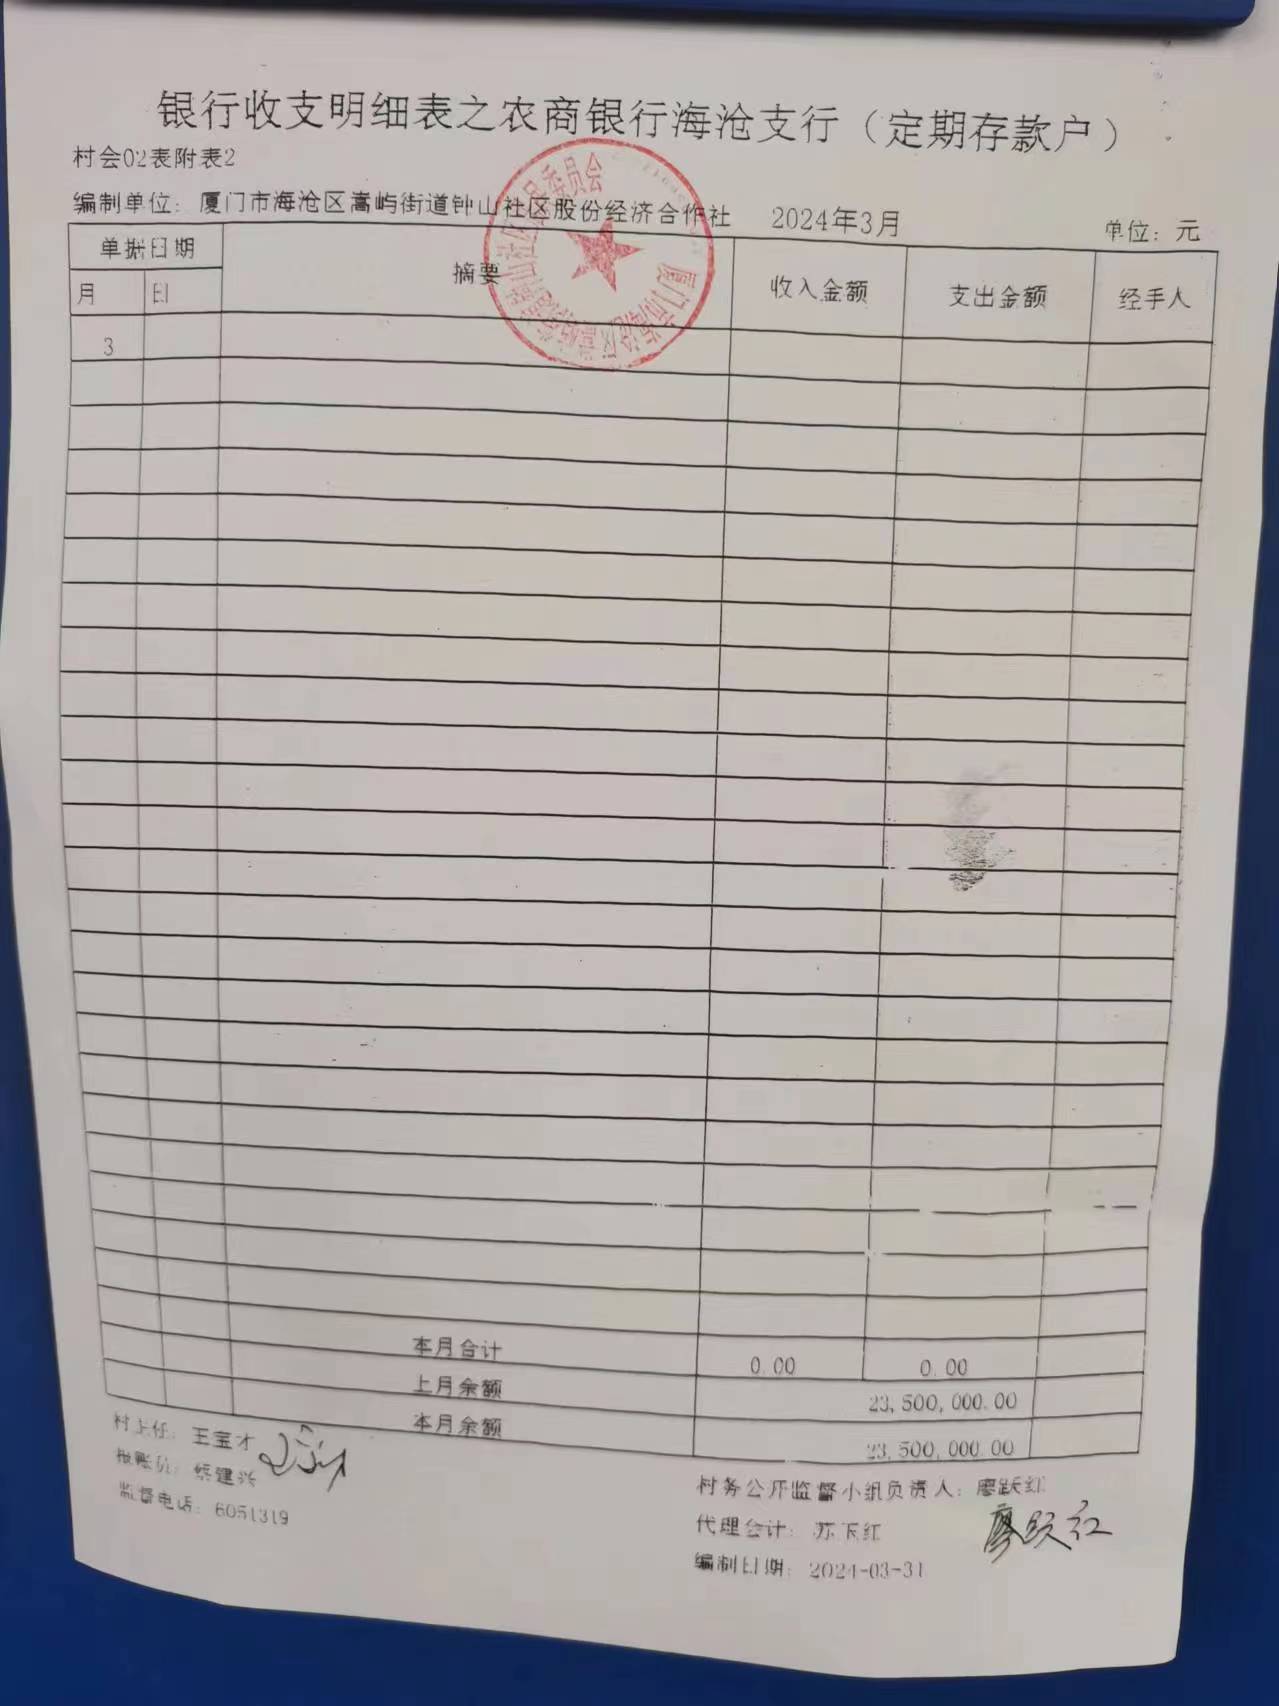 银行收支明细表之农商银行海沧支行（定期存款户）
村会02表附表2
编制单位：厦门市海沧区嵩屿街道钟山社区股份经济合作社 2024年3月 单位：元
单据日期 摘要 收入金额 支出金额 经手人
月 日
3
本月合计 0.00 0.00
上月余额 23,500,000.00
本月余额 23,500,000.00
村主任：王宝才
报账员：蔡建兴
监督电话：6051319
村务公开监督小组负责人：廖跃红
代理会计：苏 红
廖跃红
编制日期：2024-03-31
厦门市海沧区嵩屿街道钟山社区居民委员会